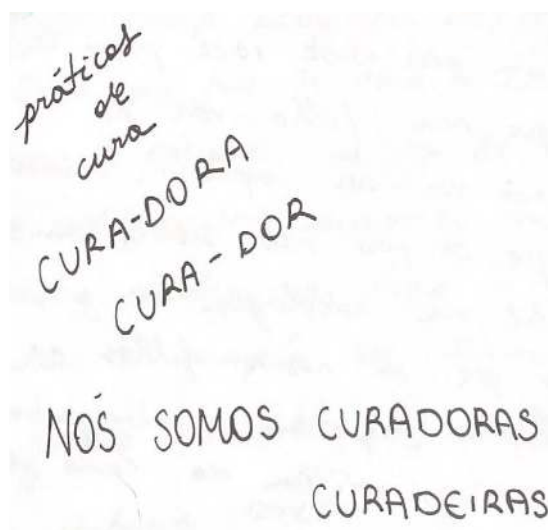 práticas
de
cura
CURA-DORA
CURA-DOR
NÓS SOMOS CURADORAS
CURADEIRAS